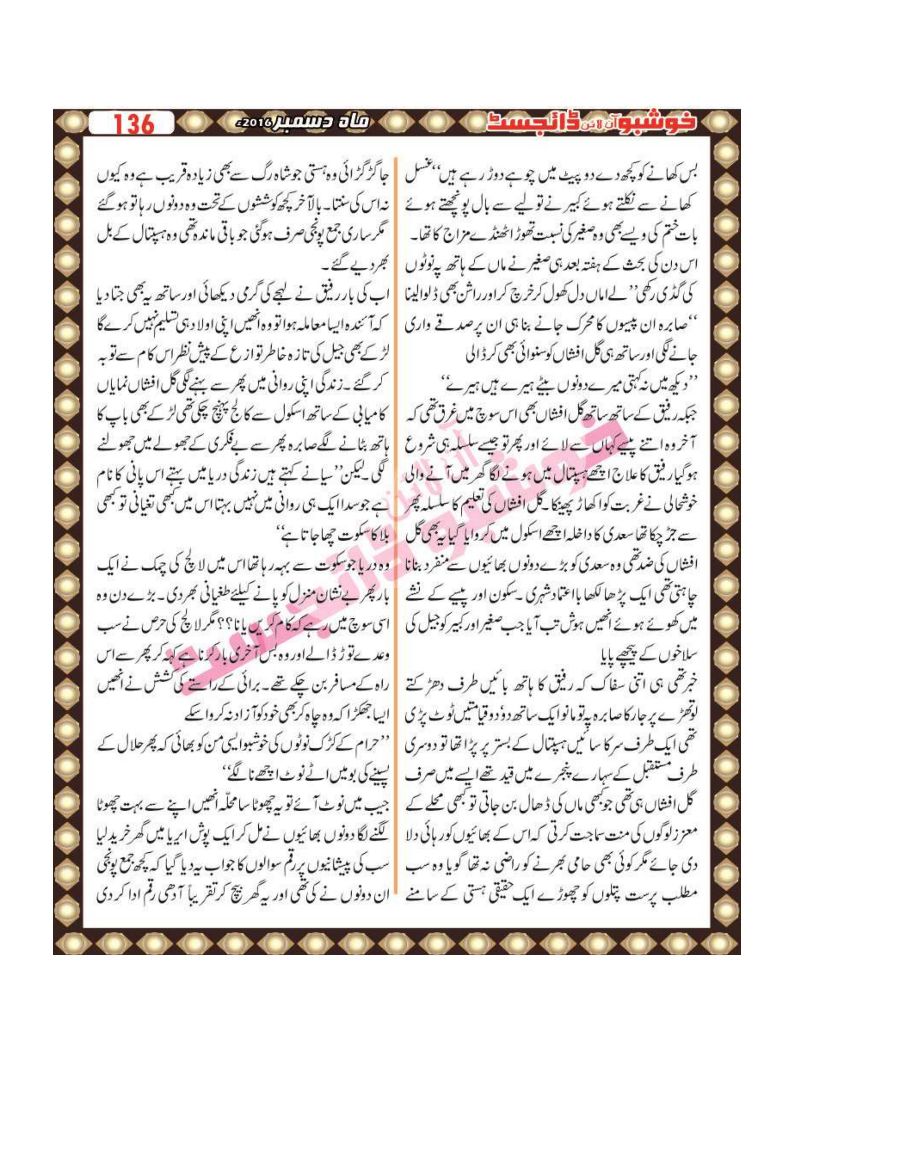 خوشبو آن لائن ڈائجسٹ
ماہ دسمبر 2016ء
136
بس کھانے کو کچھ دے دو پیٹ میں چوہے دوڑ رہے ہیں‘‘غسل
کھانے سے نکلتے ہوئے کبیر نے تولیے سے بال پونچھتے ہوئے
بات ختم کی ویسے بھی وہ صغیر کی نسبت تھوڑا ٹھنڈے مزاج کا تھا۔
اس دن کی بحث کے ہفتہ بعد ہی صغیر نے ماں کے ہاتھ پہ نوٹوں
کی گڈی رکھی’’ لے اماں دل کھول کر خرچ کر اور راشن بھی ڈلوا لینا
‘‘صابرہ ان پیسوں کا محرک جانے بنا ہی ان پر صدقے واری
جانے لگی اور ساتھ ہی گل افشاں کو سنوائی بھی کر ڈالی
’’دیکھ میں نہ کہتی میرے دونوں بیٹے ہیرے ہیں ہیرے‘‘
جبکہ رفیق کے ساتھ ساتھ گل افشاں بھی اس سوچ میں غرق تھی کہ
آخر وہ اتنے پیسے کہاں سے لائے اور پھر تو جیسے سلسلہ ہی شروع
ہوگیا رفیق کا علاج اچھے ہسپتال میں ہونے لگا گھر میں آنے والی
خوشحالی نے غربت کو اکھاڑ پھینکا۔ گل افشاں کی تعلیم کا سلسلہ پھر
سے جڑ چکا تھا سعدی کا داخلہ اچھے اسکول میں کروایا گیا یہ بھی گل
افشاں کی ضد تھی وہ سعدی کو بڑے دونوں بھائیوں سے منفرد بنانا
چاہتی تھی ایک پڑھا لکھا بااعتماد شہری ۔سکون اور پیسے کے نشے
میں کھوئے ہوئے انھیں ہوش تب آیا جب صغیر اور کبیر کو جیل کی
سلاخوں کے پیچھے پایا
خبر تھی ہی اتنی سفاک کہ رفیق کا ہاتھ بائیں طرف دھڑکتے
لوتھڑے پر جا رکا صابرہ پہ تو مانو ایک ساتھ دو دو قیامتیں ٹوٹ پڑی
تھی ایک طرف سر کا سائیں ہسپتال کے بستر پر پڑا تھا تو دوسری
طرف مستقبل کے سہارے پنجرے میں قید تھے ایسے میں صرف
گل افشاں ہی تھی جو کبھی ماں کی ڈھال بن جاتی تو کبھی محلے کے
معزز لوگوں کی منت سماجت کرتی کہ اس کے بھائیوں کو رہائی دلا
دی جائے مگر کوئی بھی حامی بھرنے کو راضی نہ تھا گویا وہ سب
مطلب پرست پتلوں کو چھوڑے ایک حقیقی ہستی کے سامنے
جا گڑگڑائی وہ ہستی جو شاہ رگ سے بھی زیادہ قریب ہے وہ کیوں
نہ اس کی سنتا۔ بالآخر کچھ کوششوں کے تحت وہ دونوں رہا تو ہوگئے
مگر ساری جمع پونجی صرف ہوگئی جو باقی ماندہ تھی وہ ہسپتال کے بل
بھر دیے گئے۔
اب کی بار رفیق نے لہجے کی گرمی دیکھائی اور ساتھ یہ بھی جتا دیا
کہ آئندہ ایسا معاملہ ہوا تو وہ انھیں اپنی اولاد ہی تسلیم نہیں کرے گا
لڑکے بھی جیل کی تازہ خاطر توازع کے پیش نظر اس کام سے توبہ
کر گئے ۔زندگی اپنی روانی میں پھر سے بہنے لگی گل افشاں نمایاں
کامیابی کے ساتھ اسکول سے کالج پہنچ چکی تھی لڑکے بھی باپ کا
ہاتھ بٹانے لگے صابرہ پھر سے بے فکری کے جھولے میں جھولنے
لگی ۔لیکن’’سیانے کہتے ہیں زندگی دریا میں بہتے اس پانی کا نام
ہے جو سدا ایک ہی روانی میں نہیں بہتا اس میں کبھی تغیانی تو کبھی
بلا کا سکوت چھا جاتا ہے‘‘
وہ دریا جو سکوت سے بہہ رہا تھا اس میں لالچ کی چمک نے ایک
بار پھر بے نشان منزل کو پانے کیلئے طغیانی بھر دی۔ بڑے دن وہ
اسی سوچ میں رہے کہ کام کریں یا نا؟؟ مگر لالچ کی حرص نے سب
وعدے توڑ ڈالے اور وہ بس آخری بار کرنا ہے کہہ کر پھر سے اس
راہ کے مسافر بن چکے تھے۔ برائی کے راستے کی کشش نے انھیں
ایسا جھکڑا کہ وہ چاہ کر بھی خود کو آزاد نہ کروا سکے
’’حرام کے کڑک نوٹوں کی خوشبو ایسی من کو بھائی کہ پھر حلال کے
پسینے کی بو میں اٹے نوٹ اچھے نا لگے‘‘
جیب میں نوٹ آئے تو یہ چھوٹا سا محلّہ انھیں اپنے سے بہت چھوٹا
لگنے لگا دونوں بھائیوں نے مل کر ایک پوش ایریا میں گھر خرید لیا
سب کی پیشانیوں پر رقم سوالوں کا جواب یہ دیا گیا کہ کچھ جمع پونجی
ان دونوں نے کی تھی اور یہ گھر بیچ کر تقریباً آدھی رقم ادا کر دی